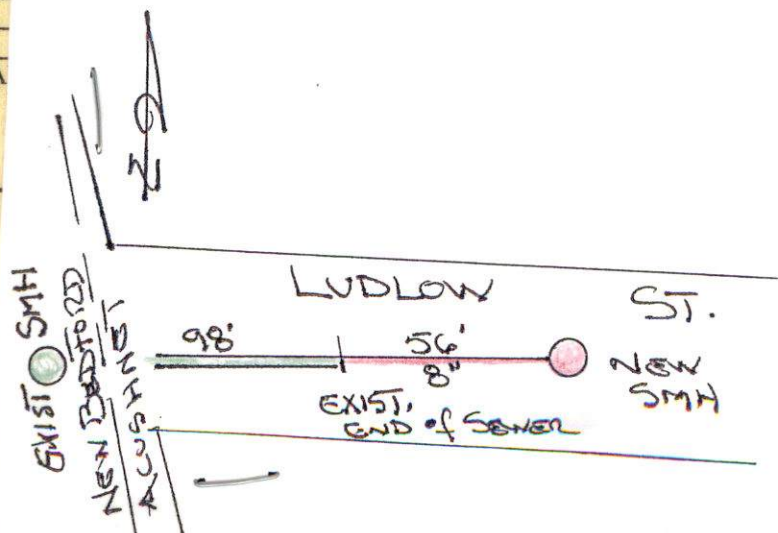 N
LUDLOW ST.
98'
56'
8"
EXIST.
END of SEWER
NEW
SMH
EXIST SMH
NEW BEDFORD
ACUSHNET